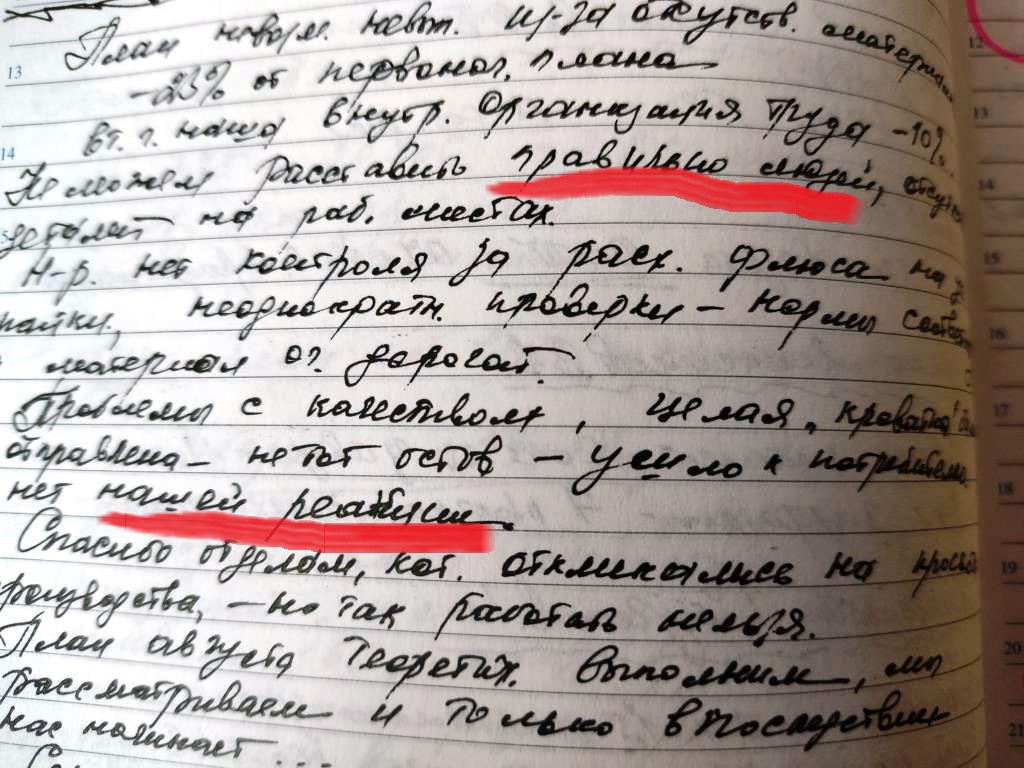 План невып. из-за отсутств. материал
-23% от первонач. плана
в т.ч. наша внутр. организация труда -10%.
Не можем расставить правильно людей, отсут
деталей на раб. местах.
Н-р. нет контроля за расх. флюса на
пайки, неоднократн. проверки - нормы соотв
материал оч. дорогой.
Проблемы с качеством, целая „кроватка"
отправлена - не тот остов - ушло к потребителю
нет нашей реакции.
Спасибо отделам, кот. откликались на просьб
роизводства, - но так работать нельзя.
План августа теоретич. выполним, мы
рассматриваем и только впоследствии
нас начинает ...
12
13
13
14
14
15
16
17
18
19
20
21